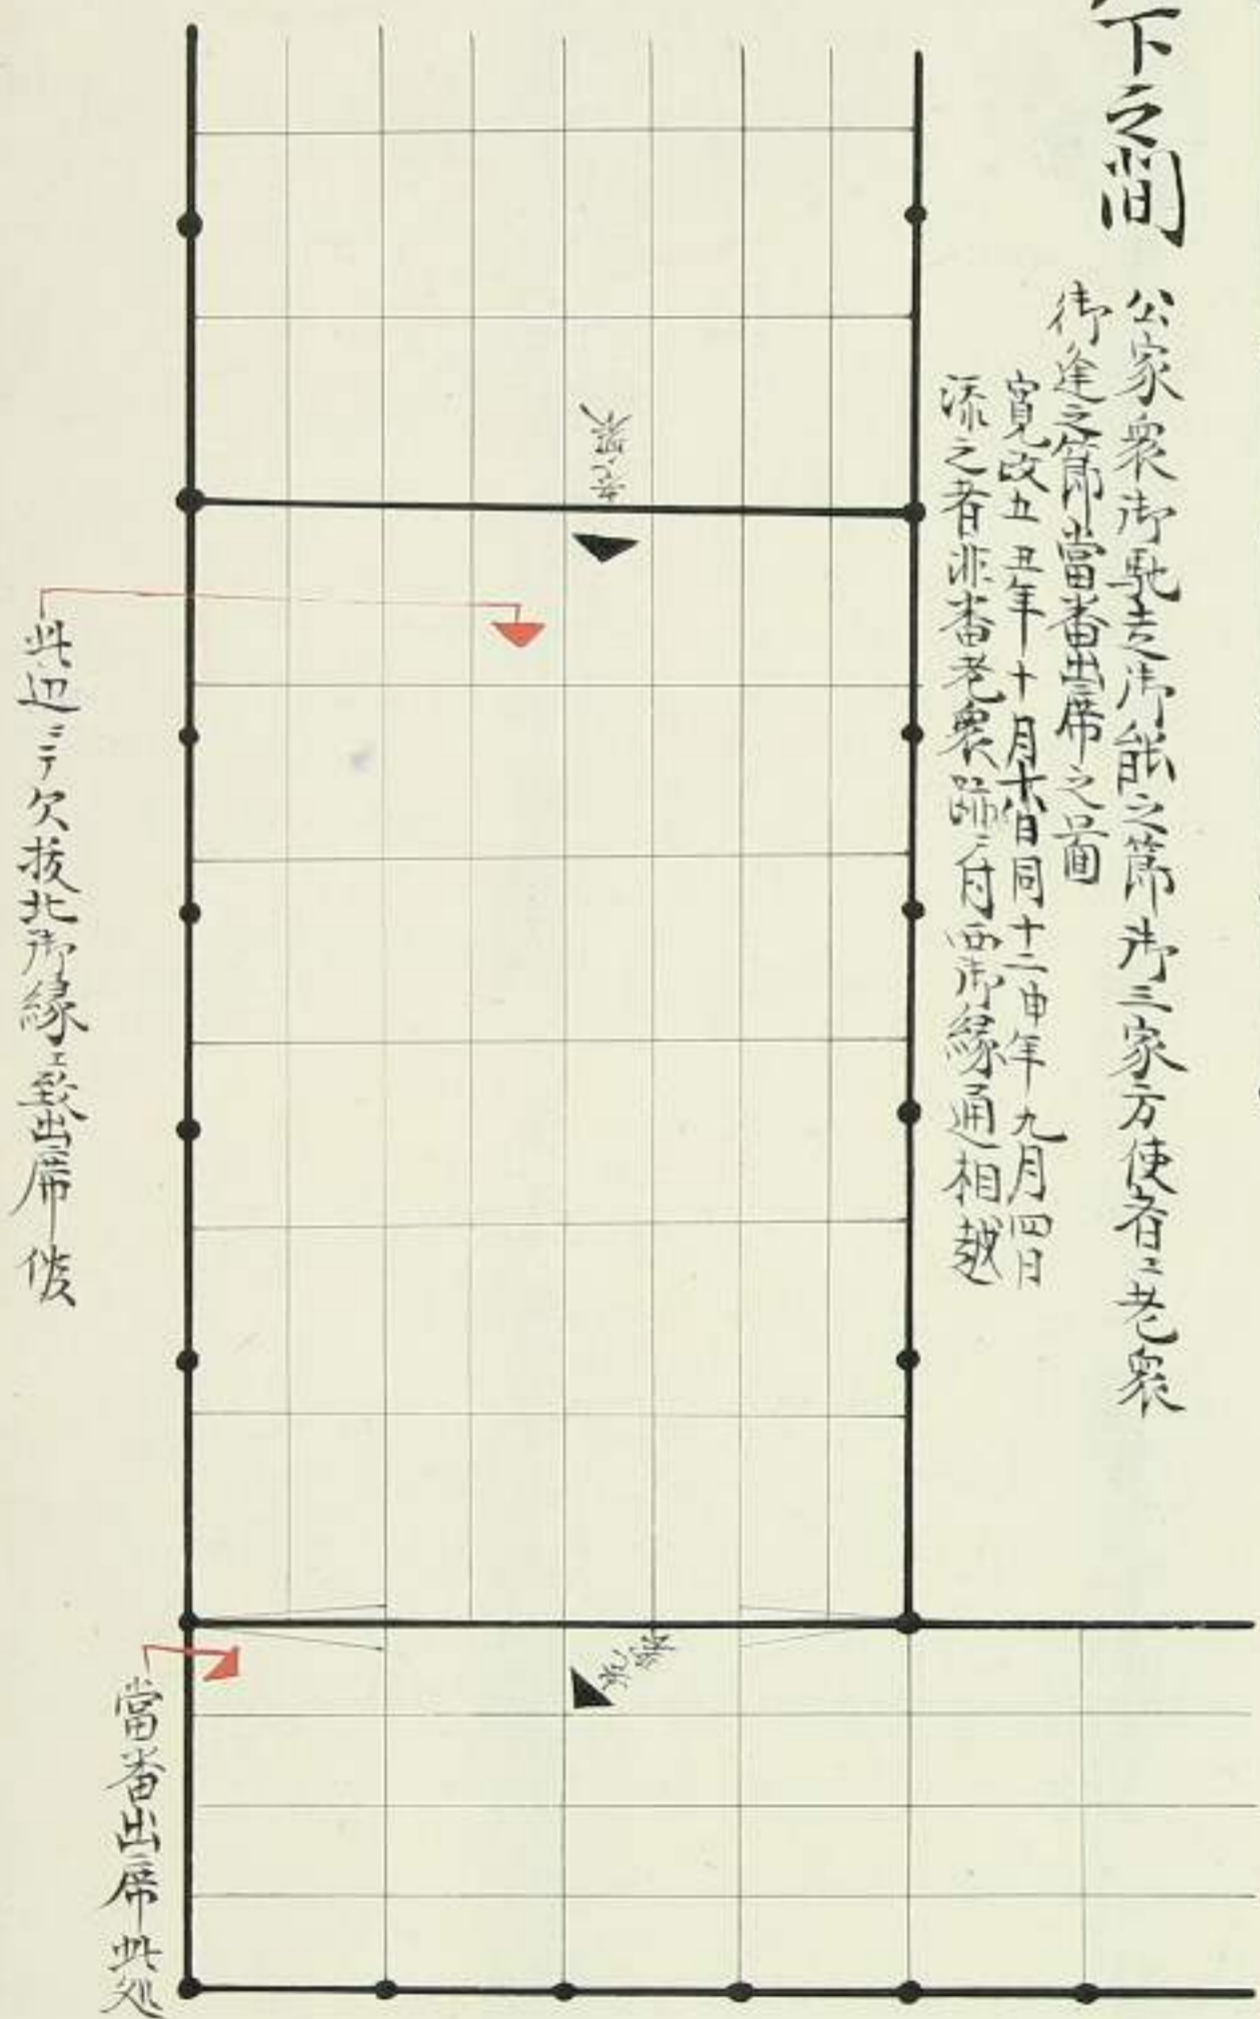 下之間
公家衆御馳走御能之節御三家方使者ニ老衆
御逢之節當番出席之圖
寛政五丑年十月 日同十二申年九月四日
添之者非番老衆跡ニ付西御縁通相越
老衆
此辺ニテ欠抜北御縁エ致出席候
老衆
當番出席此処